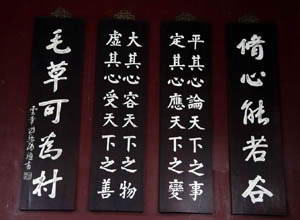 脩心能若谷
平其心論天下之事
定其心應天下之變
大其心容天下之物
虛其心受天下之善
毛草可為村